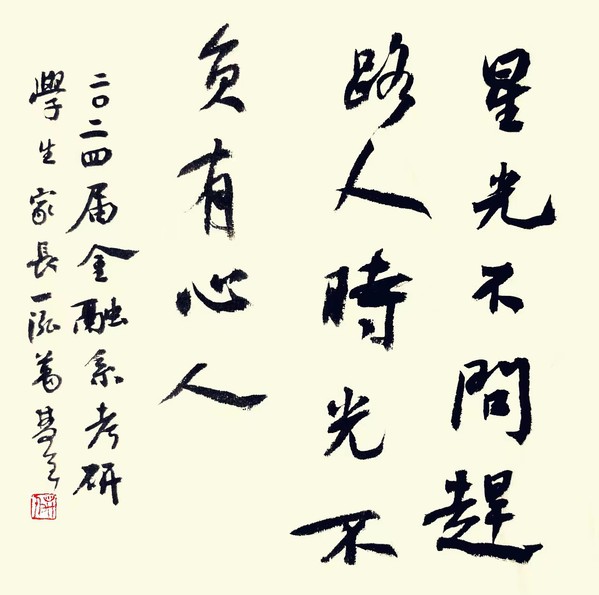 星光不問趕
路人時光不
負有心人
二〇二四届金融系考研
學生家長一泓萬